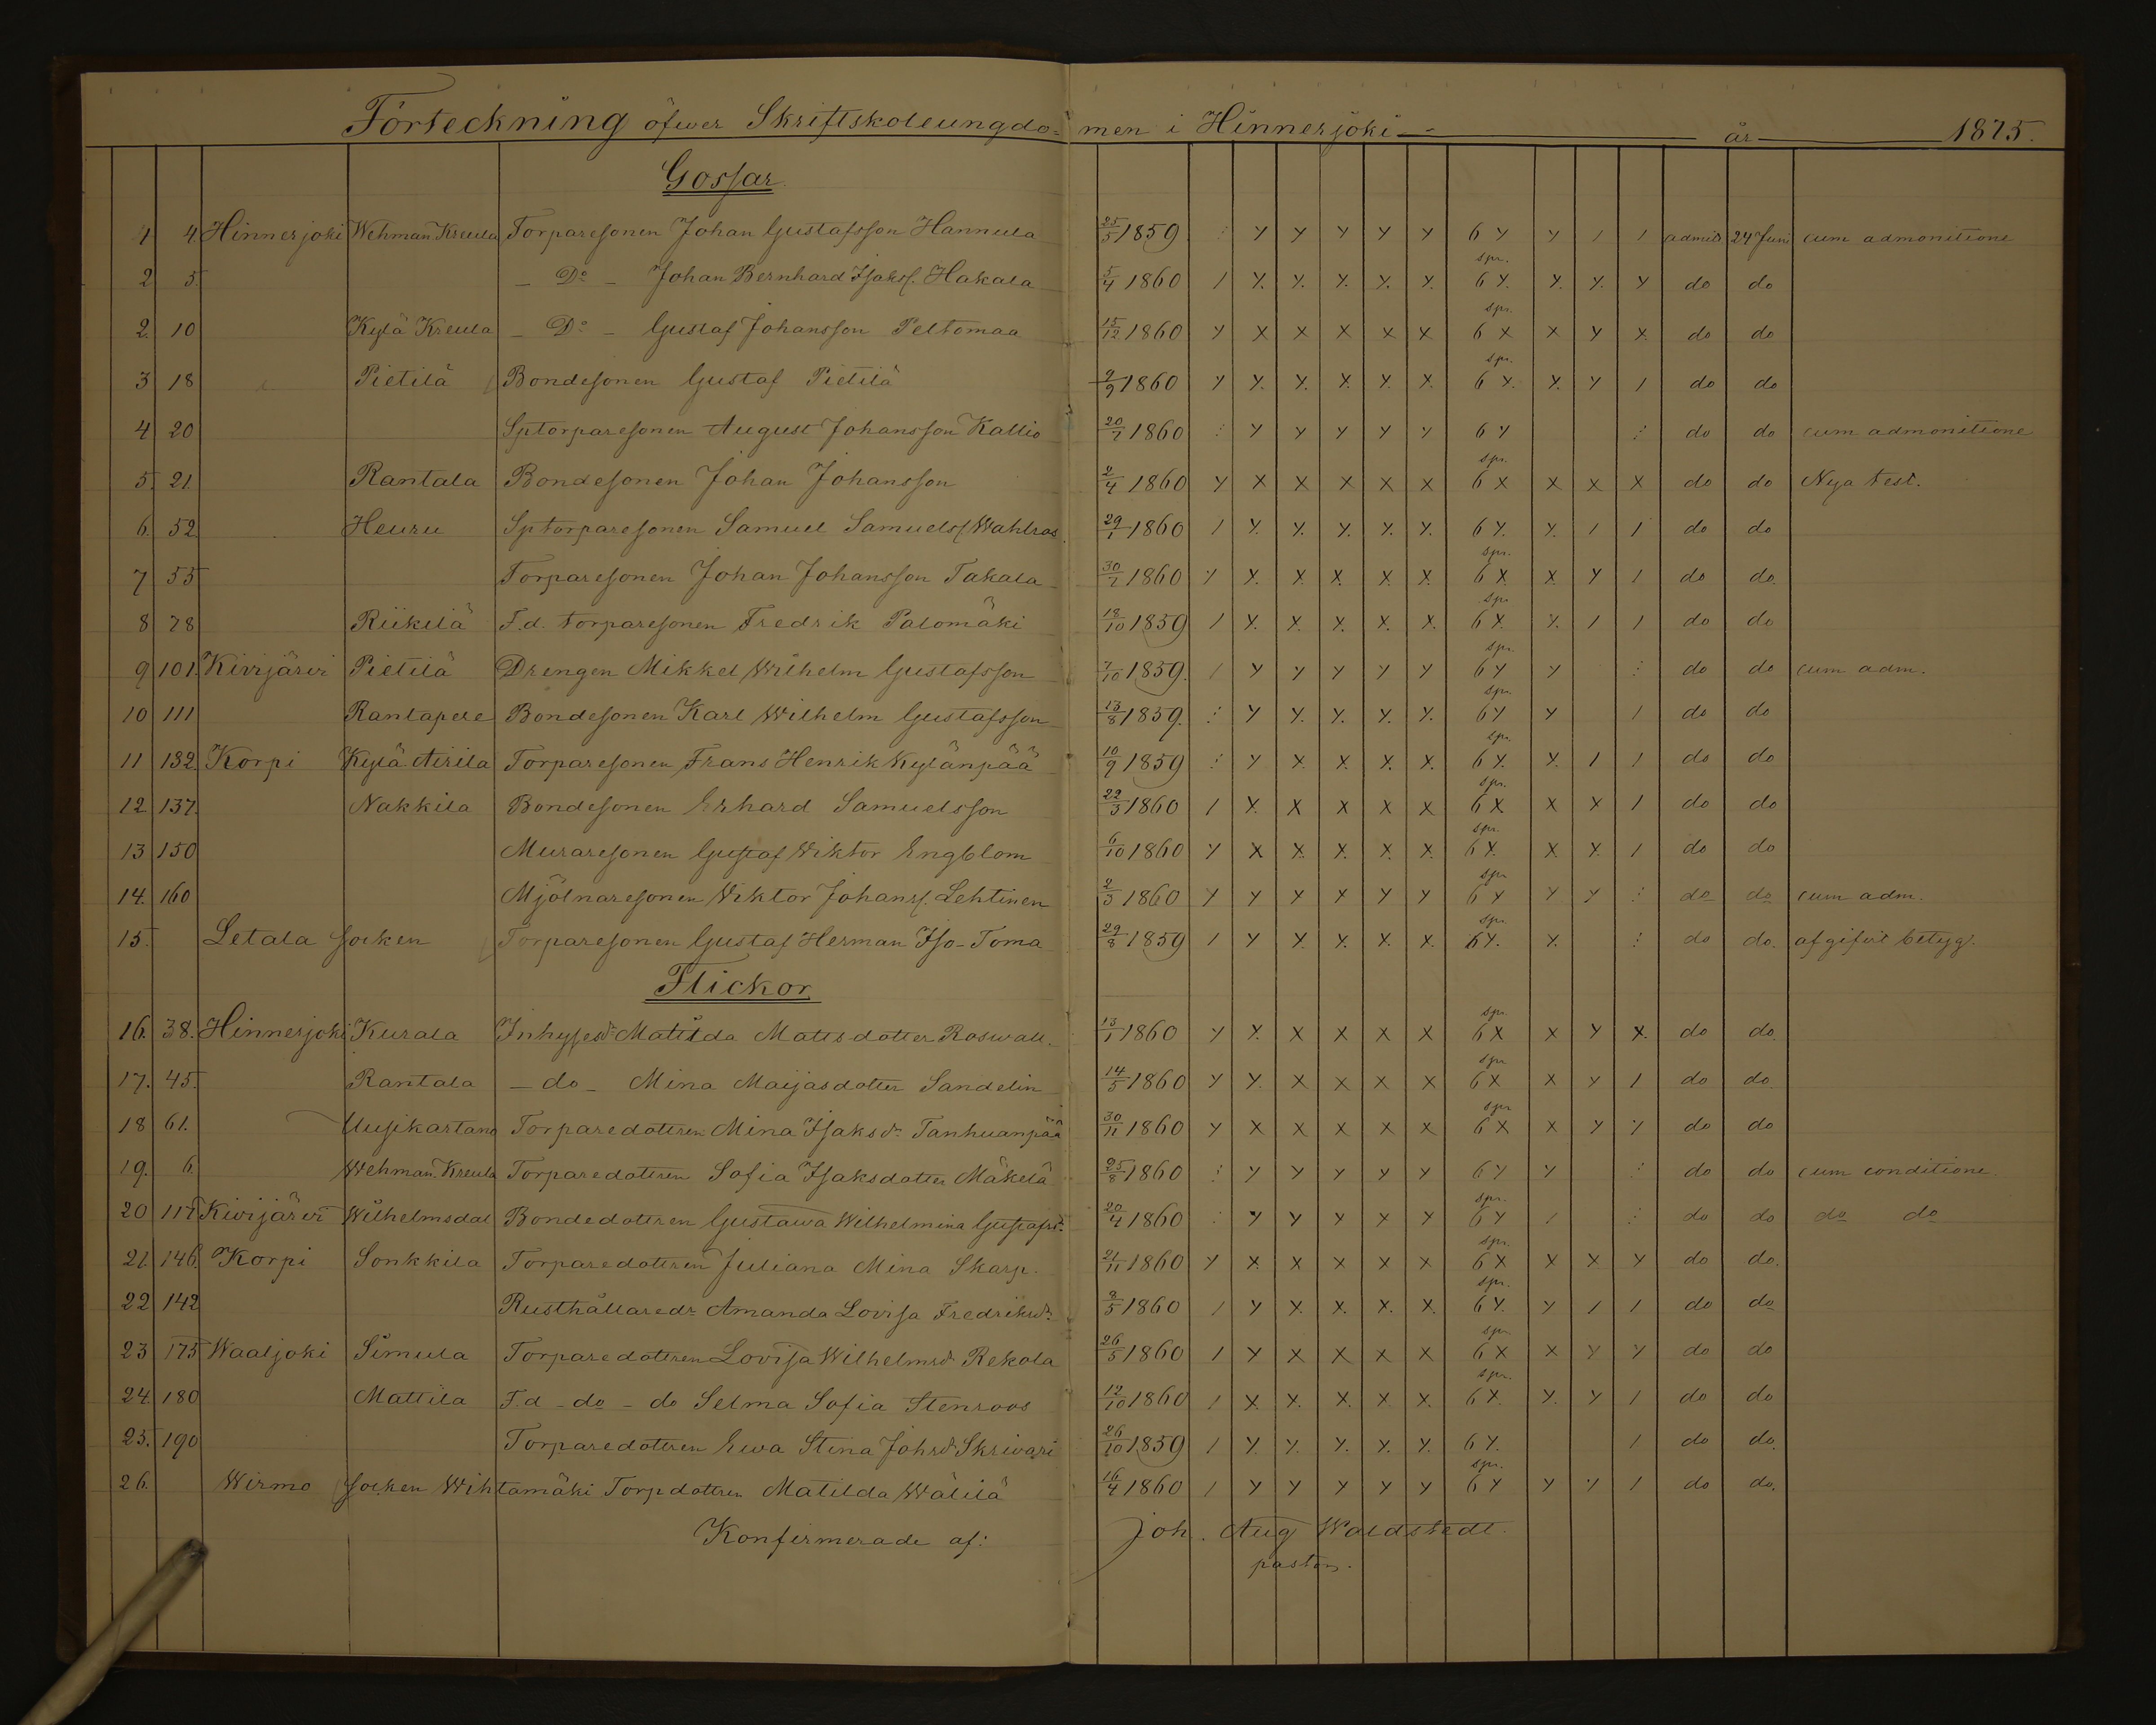 Förteckning öfwer Skriftskoleungdomen i Hinnerjoki år 1875.
Gossar
1 4. Hinnerjoki Wehman Kreula Torparesonen Johan Gustafsson Hannula 25/5 1859 ⫶ y y y y y 6 y y / / admis 24 Juni cum admonitione
2 5. – Do – Johan Bernhard Isakss. Hakala 5/4 1860 / y. y. y. y. y. spr. 6 y. y. y. y do do
2. 10 Kylä Kreula – Do – Gustaf Johansson Peltomaa 15/12 1860 y x x x x x spr. 6 x x y x do do
3 18 Pietilä Bondesonen Gustaf Pietilä 9/9 1860 y y. y. x. y. x. spr. 6 y. y. y / do do
4 20 Sptorparesonen August Johansson Kallio 20/7 1860 ⫶ y y y y y 6 y ⫶ do do cum admonitione
5. 21. Rantala Bondesonen Johan Johansson 2/4 1860 y x x x x x spr. 6 x x x x do do Nya test.
6. 52. Heuru Sptorparesonen Samuel Samuelss Wahlros. 29/1 1860 / y. y. y. y. y. 6 y. y. / / do do
7 55 Torparesonen Johan Johansson Takala 30/7 1860 y x. x. x. x. x. spr. 6 x x y / do do.
8 78 Riikilä F.d. torparesonen Fredrik Palomäki 18/10 1859 / y. x. x. x. x. spr 6 y. y. / / do do
9 101. Kivijärvi Pietilä Drengen Mikkel Wilhelm Gustafsson 7/10 1859. / y y y y y spr. 6 y y ⫶ do do cum adm.
10 111 Rantapere Bondesonen Karl Wilhelm Gustafsson 13/8 1859. ⫶ y y. y. y. y. spr. 6 y y / do do
11 132 Korpi Kylä Airila Torparesonen Frans Henrik Kylänpää 10/9 1859 ⫶ y x. x. x. x. spr. 6 y. y. / / do do
12. 137. Nakkila Bondesonen Erhard Samuelsson 22/3 1860 / x. x x x x spr. 6 x x x / do do
13 150 Muraresonen Gustaf Wiktor Engblom 6/10 1860 y x x. x. x. x. spr. 6 x. x x. / do do
14. 160 Mjölnaresonen Viktor Johanss. Lehtinen 2/3 1860 y y y x y y spr 6 y y y ⫶ do do cum adm.
15. Letala socken Torparesonen Gustaf Herman Iso-Toma 29/8 1859 / y y. y. x. x. spr. 6 y. y. ⫶ do do. afgifvit betyg.
Flickor
16. 38. Hinnerjoki Kurala Inhysesdr Matilda Matsdotter Roswall. 13/1 1860 y y. x x x x spr. 6 x x y x. do do.
17. 45. Rantala – do – Mina Maijasdotter Sandelin 14/5 1860 y y. x x x x spr 6 x x y / do do
18 61. Uusikartano Torparedottren Mina Isaksdr Tanhuanpää 30/11 1860 y x x x x x spr 6 x x y y do do
19. 6. Wehman Kreula Torparedottren Sofia Isaksdotter Mäkelä 25/8 1860 ⫶ y y y y y 6 y y ⫶ do do cum conditione.
20 117 Kivijärvi Wilhelmsdal Bondedottren Gustawa Wilhelmina Gustafsdr. 20/4 1860 ⫶ y y y y y spr. 6 y / ⫶ do do do do
21. 146. Korpi Sonkkila Torparedottren Juliana Mina Skarp. 21/11 1860 y x. x x x x spr. 6 x x x y do do.
22 142 Rusthållaredr Amanda Lovisa Fredriksdr. 8/5 1860 / y x. x. x. x. spr. 6 y. y / / do do
23 175 Waaljoki Simula Torparedottren Lovisa Wilhelmsdr Rekola 26/5 1860 / y x x x x spr 6 x x y y do do
24. 180 Mattila F.d – do – do Selma Sofia Stenroos 12/10 1860 / x x. x. x. x. spr. 6 x. y. y / do do
25. 190 Torparedottren Ewa Stina Johsdr Skrivari 26/10 1859 / y. y. y. y. y. 6 y. / do do.
26. Wirmo socken Wihtamäki Torpdottren Matilda Wälilä 16/4 1860 / y y y y y spr. 6 y y y / do do.
Konfirmerade af: Joh. Aug Waldstedt.
pastor.